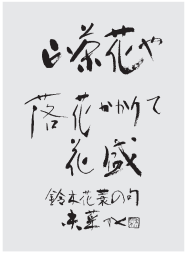 山茶花や
落花かかりて
花盛
鈴木花蓑の句